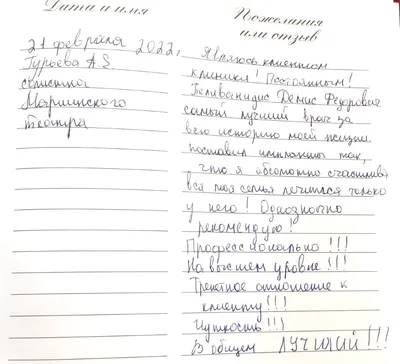 Дата и имя
Пожелания
или отзыв
21 февраля 2022г
Гурьева А.
солистка
Мариинского
театра
Являюсь клиентом
клиники! Постоянным!
Демис Федорович
самый лучший врач за
всю историю моей жизни
поставил импланты так,
что я абсолютно счастлива
вся моя семья лечится только
у него! Однозначно
рекомендую!
Профессионально!!!
На высшем уровне!!!
Трепетное отношение к
клиенту!!!
Чуткость!!!
В общем ЛУЧШИЙ!!!